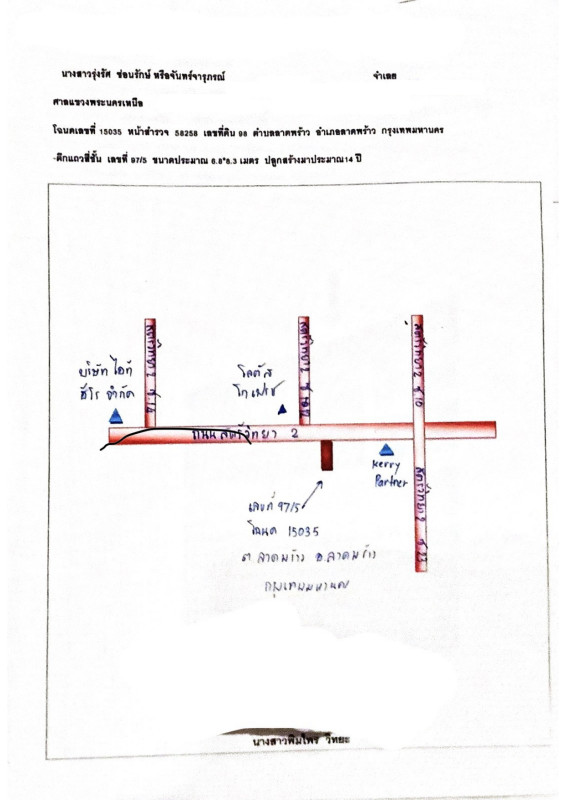 นางสาวรุ่งรัศ ซ่อนรักษ์ หรือจันทร์จารุภรณ์ จำเลย
ศาลแขวงพระนครเหนือ
โฉนดเลขที่ 15035 หน้าสำรวจ 58258 เลขที่ดิน 98 ตำบลลาดพร้าว อำเภอลาดพร้าว กรุงเทพมหานคร
-ตึกแถวสี่ชั้น เลขที่ 97/5 ขนาดประมาณ 6.8*6.3 เมตร ปลูกสร้างมาประมาณ14 ปี
สตรีวิทยา 2 ซ.
สตรีวิทยา 2 ซ.
สตรีวิทยา 2 ซ. 10
บริษัท ไอที
ฮีโร จำกัด
โลตัส
โกเฟรช
ถนนสตรีวิทยา 2
Kerry
Partner
สตรีวิทยา 2 ซ. 23
เลขที่ 97/5
โฉนด 15035
ต. ลาดพร้าว อ.ลาดพร้าว
กรุงเทพมหานคร
นางสาวพิมไพร วิทยะ